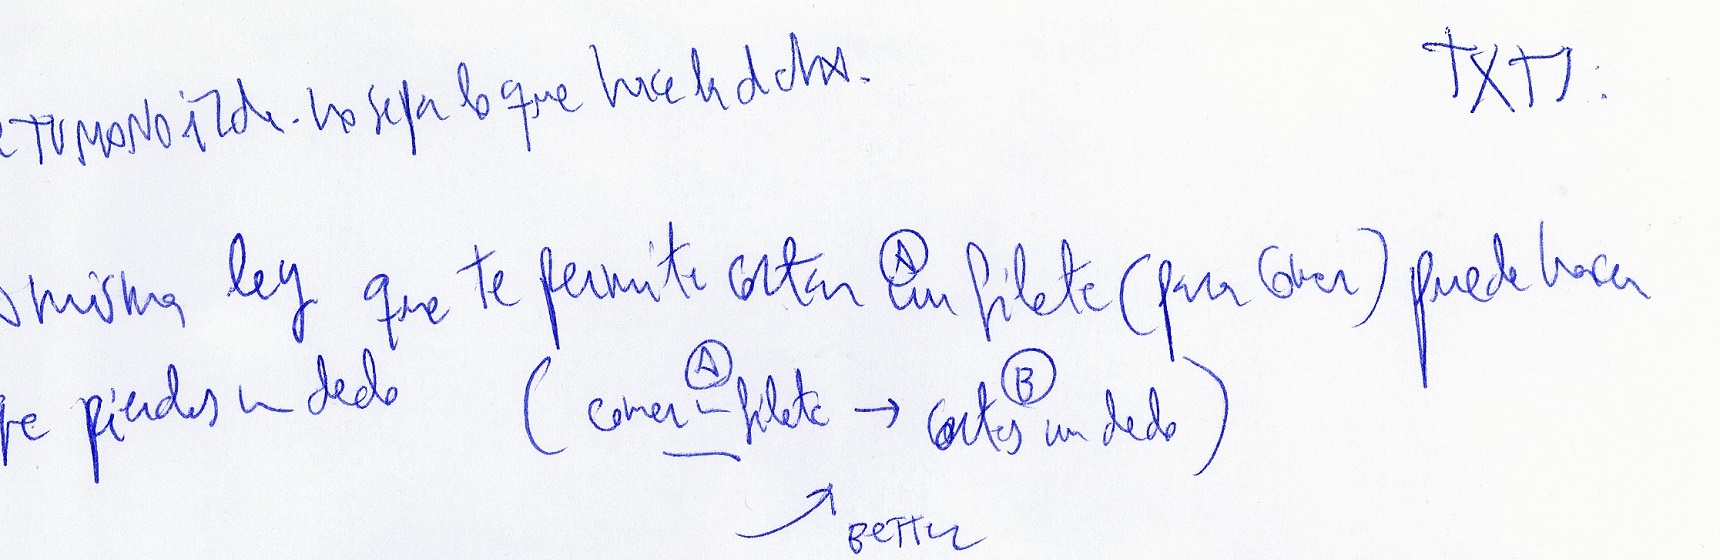 TU MANO izda. no sepa lo que hace la dcha.
TXTS:
misma ley que te permite cortar Ⓐ un filete (para comer) puede hacer
que pierdas un dedo (comer Ⓐ un filete → cortes Ⓑ un dedo)
BETTER